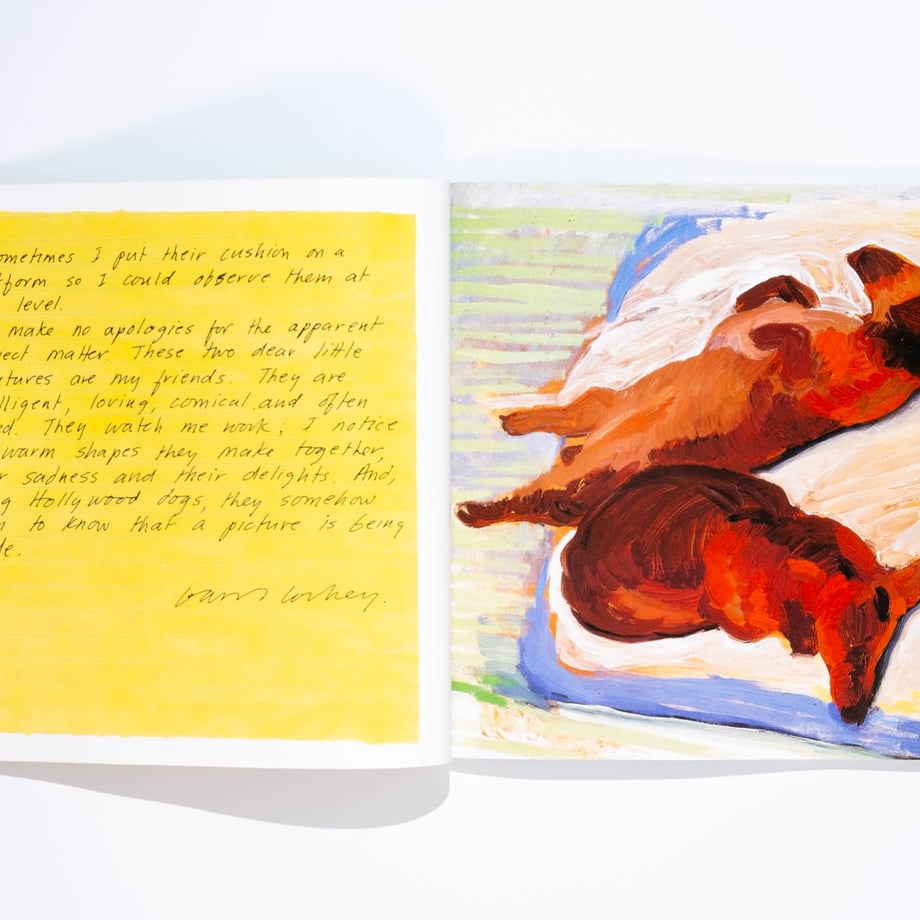 ometimes I put their cushion on a
tform so I could observe them at
level.
make no apologies for the apparent
ject matter. These two dear little
atures are my friends. They are
lligent, loving, comical and often
ed. They watch me work; I notice
warm shapes they make together,
r sadness and their delights. And,
g Hollywood dogs, they somehow
m to know that a picture is being
de.